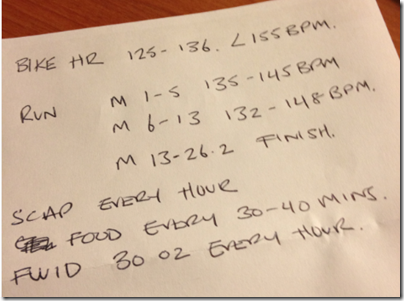 BIKE HR 125-136. < 155 BPM.
RUN M 1-5 135-145 BPM
M 6-13 132-148 BPM.
M 13-26.2 FINISH.
SCAP EVERY HOUR
FOOD EVERY 30-40 MINS.
FLUID 30 OZ EVERY HOUR.